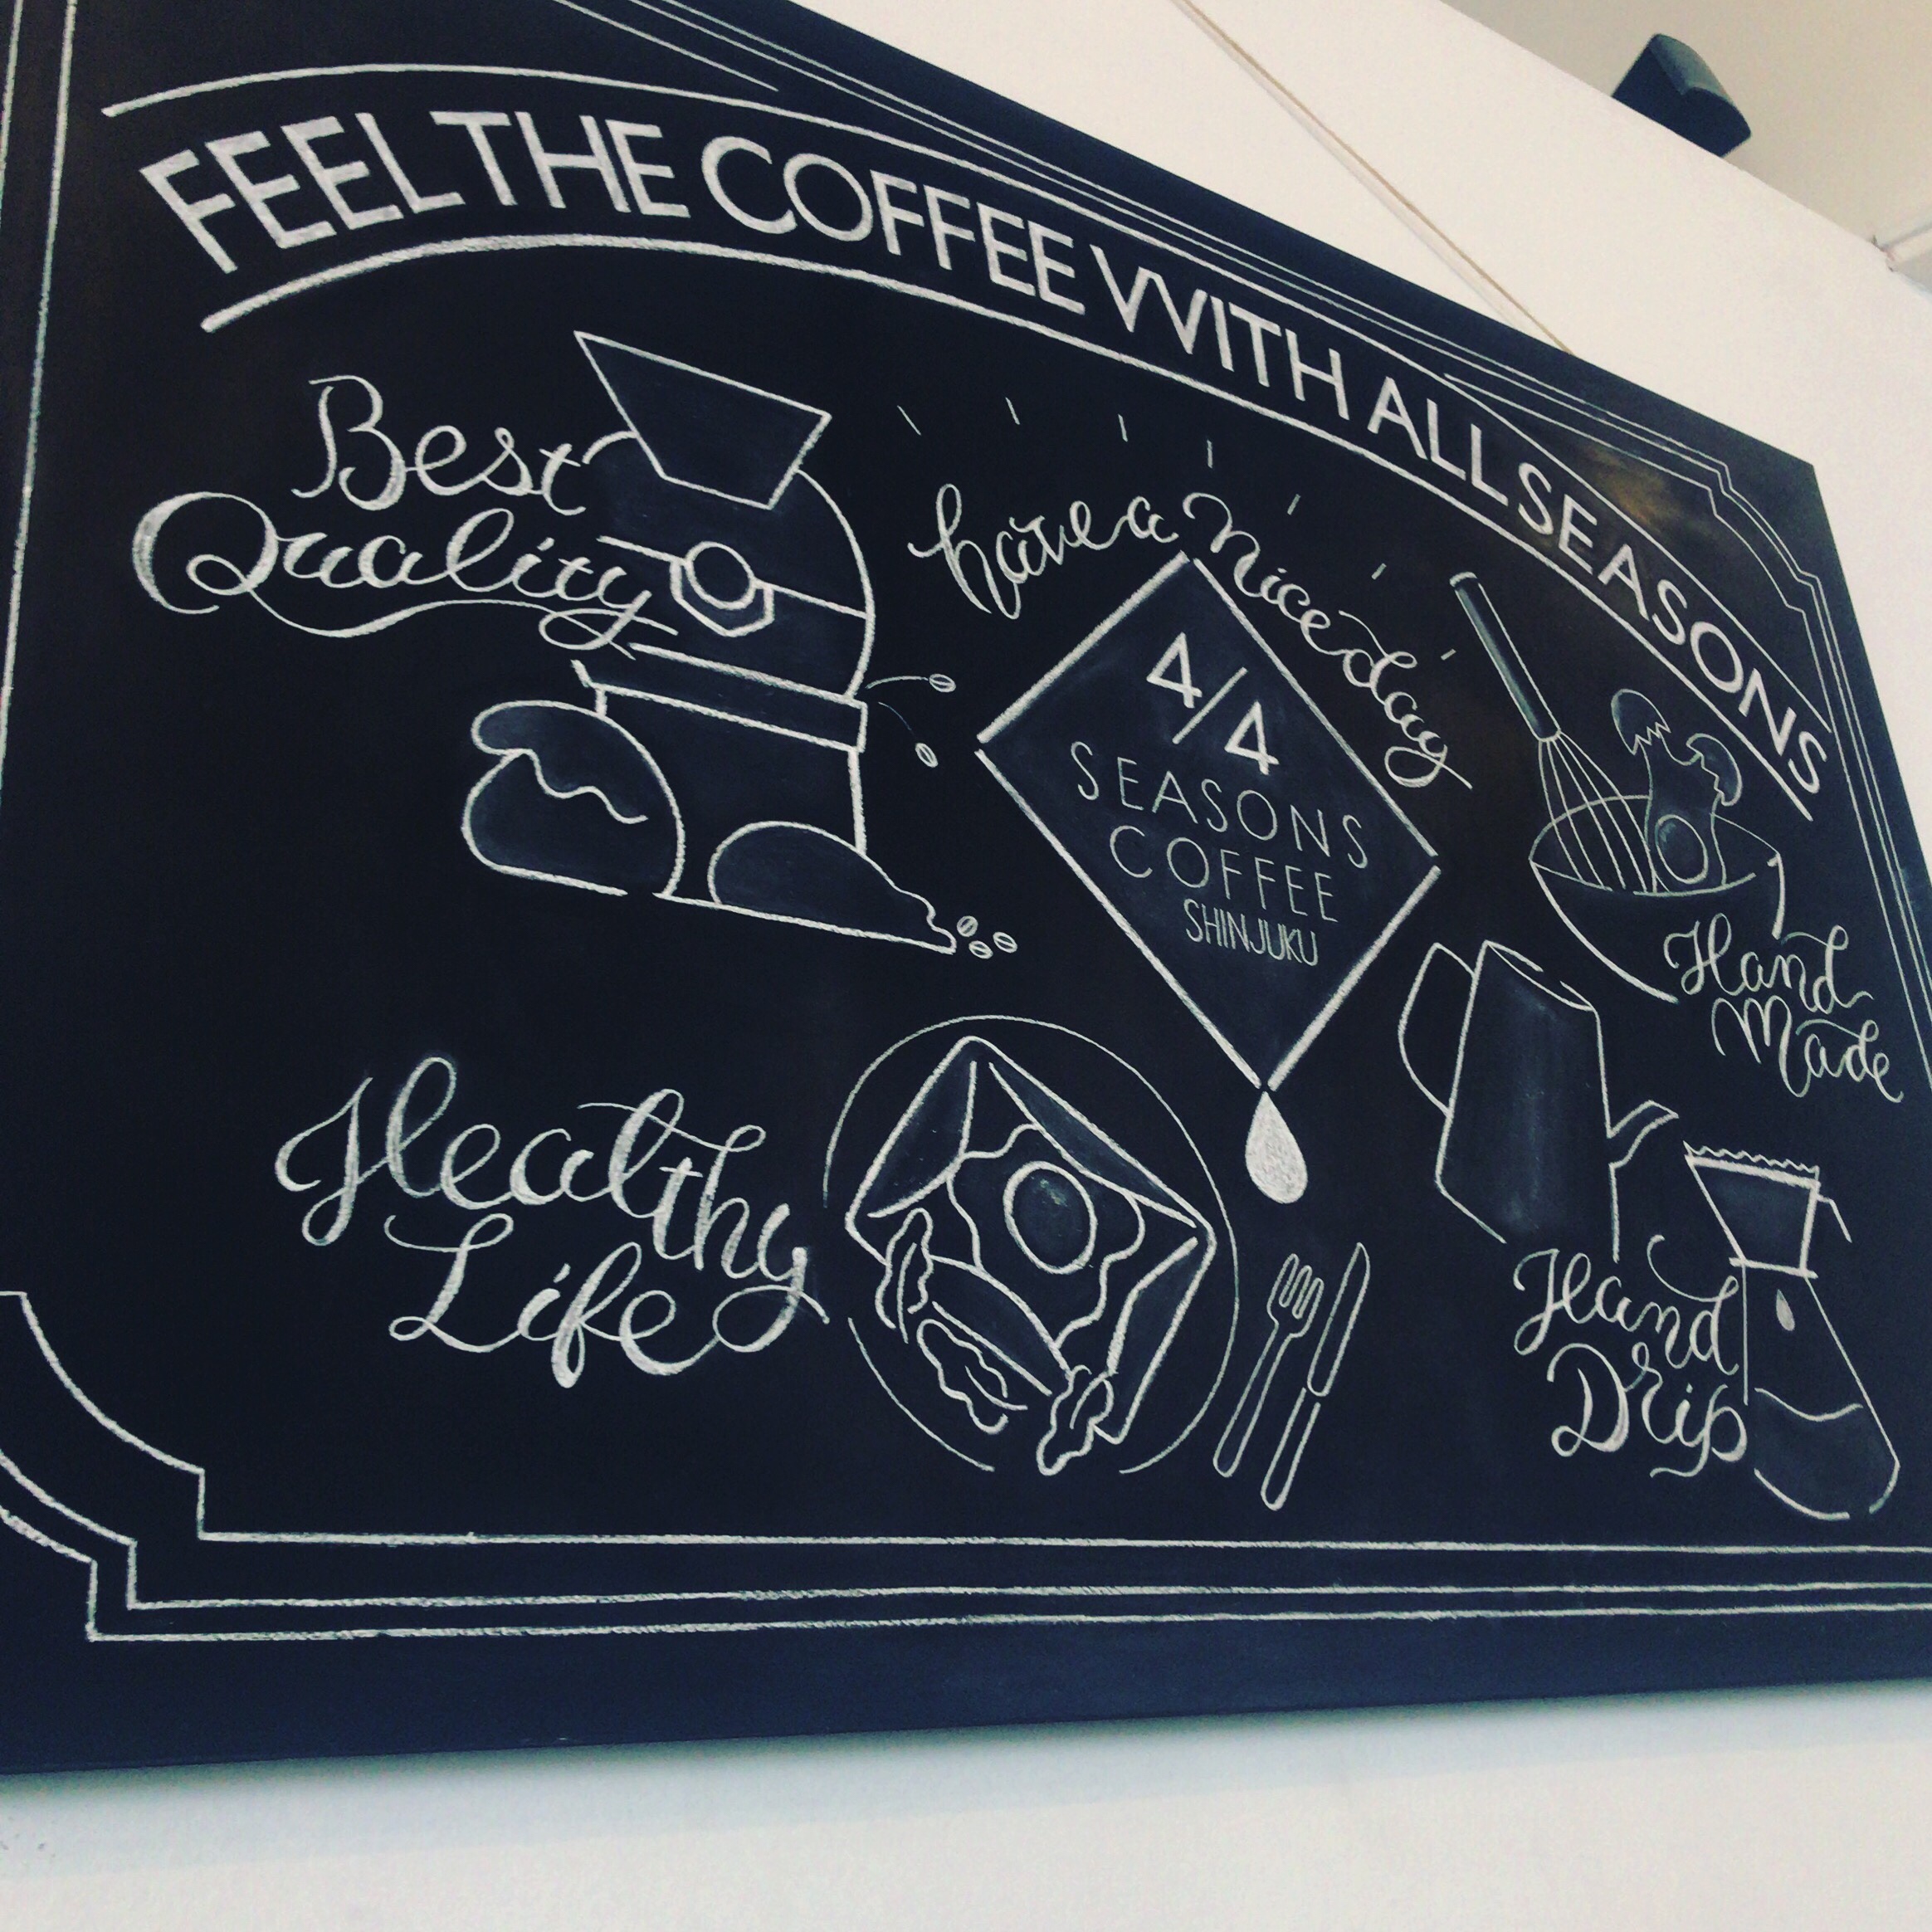 FEEL THE COFFEE WITH ALL SEASONS
Best
Quality
have a nice day
4/4
SEASONS
COFFEE
SHINJUKU
Hand
Made
Healthy
Life
Hand
Drip